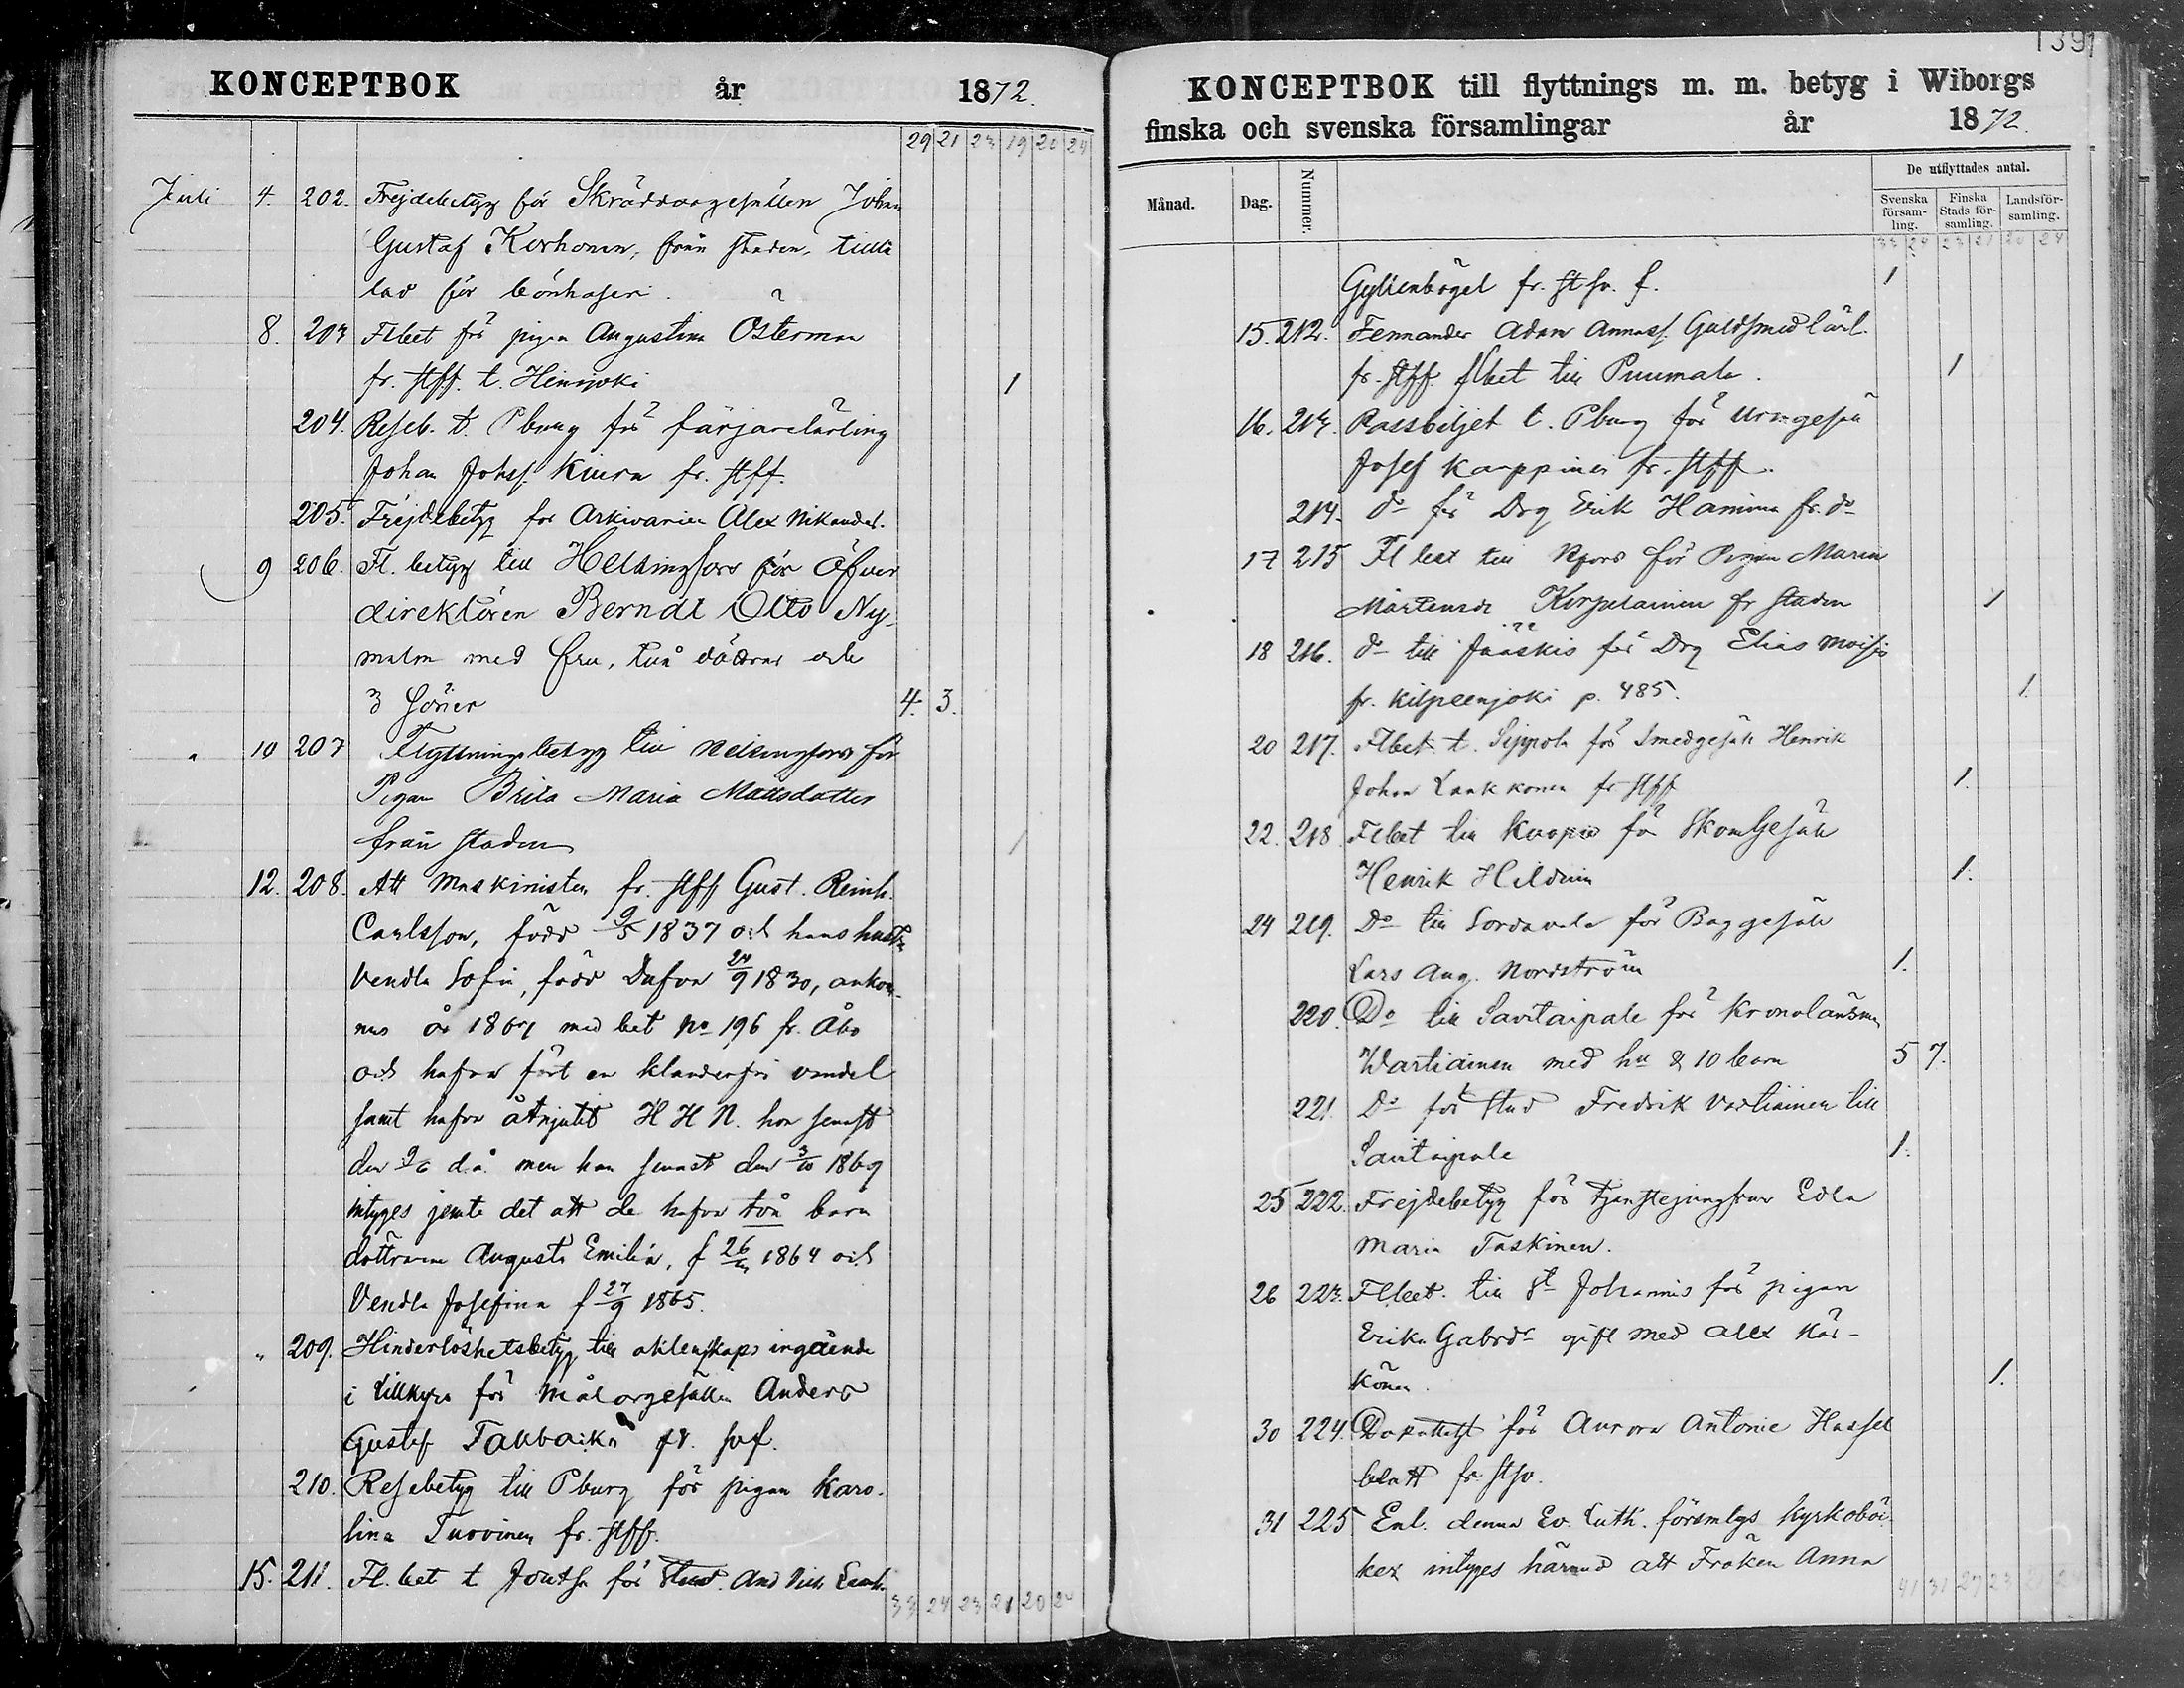 KONCEPTBOK år 1872.
29 21 23 19 20 24
Juli 4. 202. Frejdebetyg för Skräddaregesällen Johan
Gustaf Korhonen, från staden,
för
8. 203 Flbet för pigan Augustina Österman
fr. stff. t. Heinjoki 1
204. Reseb. t. Pburg för färjarelärling
Johan Johss. Kiuru fr. stff.
205. Frejdebetyg för Arkivarien Alex Nikander.
9 206. Fl. betyg till Helsingfors för Öfver
direktören Berndt Otto Ny-
malm med fru, två döttrar och
3 söner 4. 3.
" 10 207 Flyttningsbetyg till Helsingfors för
Pigan Brita Maria Mattsdotter
från staden 1
12. 208. Att Maskinisten fr. stff Gust. Reinh.
Carlsson, född 9/5 1837 och hans hustru
Vendla Sofia, född Dufva 24/9 1830, ankom-
na år 1869 med bet No 196 fr. Åbo
och hafva fört en klanderfri vandel
samt hafva åtnjutit H H N. hon senast
den 9/6 d.å. men han senast den 3/10 1869
intyges jemte det att de hafva två barn
döttrarna Augusta Emilia, f 26/ 1864 och
Vendla Josefina f 27/9 1865.
" 209. Hinderlöshetsbetyg till äktenskaps ingående
i Lillkyro för Målaregesällen Anders
Gustaf Takbacka fr. svf.
210. Resebetyg till Pburg för pigan Karo-
lina Turvinen fr. stff.
15. 211. Fl. bet t Joutsa för And
33 24 23 21 20 24
1391
KONCEPTBOK till flyttnings m. m. betyg i Wiborgs
finska och svenska församlingar år 1872.
Månad. Dag. Nummer. De utflyttades antal.
Svenska församling. Finska Stads församling. Landsförsamling.
33 24 23 21 20 24
Gyllenbögel fr. st sv. f. 1
15. 212. Fennander Adam Annass. Guldsmedlärl.
fr. stff. flbet till Puumala. 1
16. 213. Passbiljet t. Pburg för Urmgesäll
Josef Karppinen fr. stff.
214. do för Drg Erik Hamina fr. do
17 215 Fl bet till Hfors för Pigan Maria
Mårtensdr Korpelainen fr staden 1
18 216. do till Jääskis för Drg Elias
fr. Kilpeenjoki p. 485. 1.
20 217. Flbet t. Sippola för Smedgesäll Henrik
Johan Laakkonen fr stff 1.
22. 218 Flbet till Kuopio för Skomgesäll
Henrik 1.
24 219. Do till Sordavala för Baggesäll
Lars Aug. Nordström 1.
220. Do till Savitaipale för Kronolänsman
Wartiainen med hu & 10 barn 5 7.
221. Do för Stud Fredrik Vartiainen till
Savitaipale 1.
25 222. Frejdebetyg för Tjenstejungfrun Edla
Maria Taskinen.
26 223. Flbet. till St Johannis för pigan
Erika Gabrdr gift med Alex Här-
könen. 1.
30 224. för Aurora Antonie Hassel
blatt fr stsv.
31 225 Enl. denna Ev. Luth. församlgs kyrkobö-
ker intyges härmed att Fröken Anna
41 31 27 23